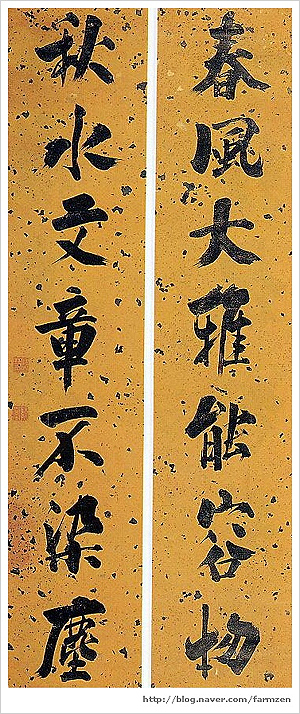 春風大雅能容物
秋水文章不染塵
http://blog.naver.com/farmzen